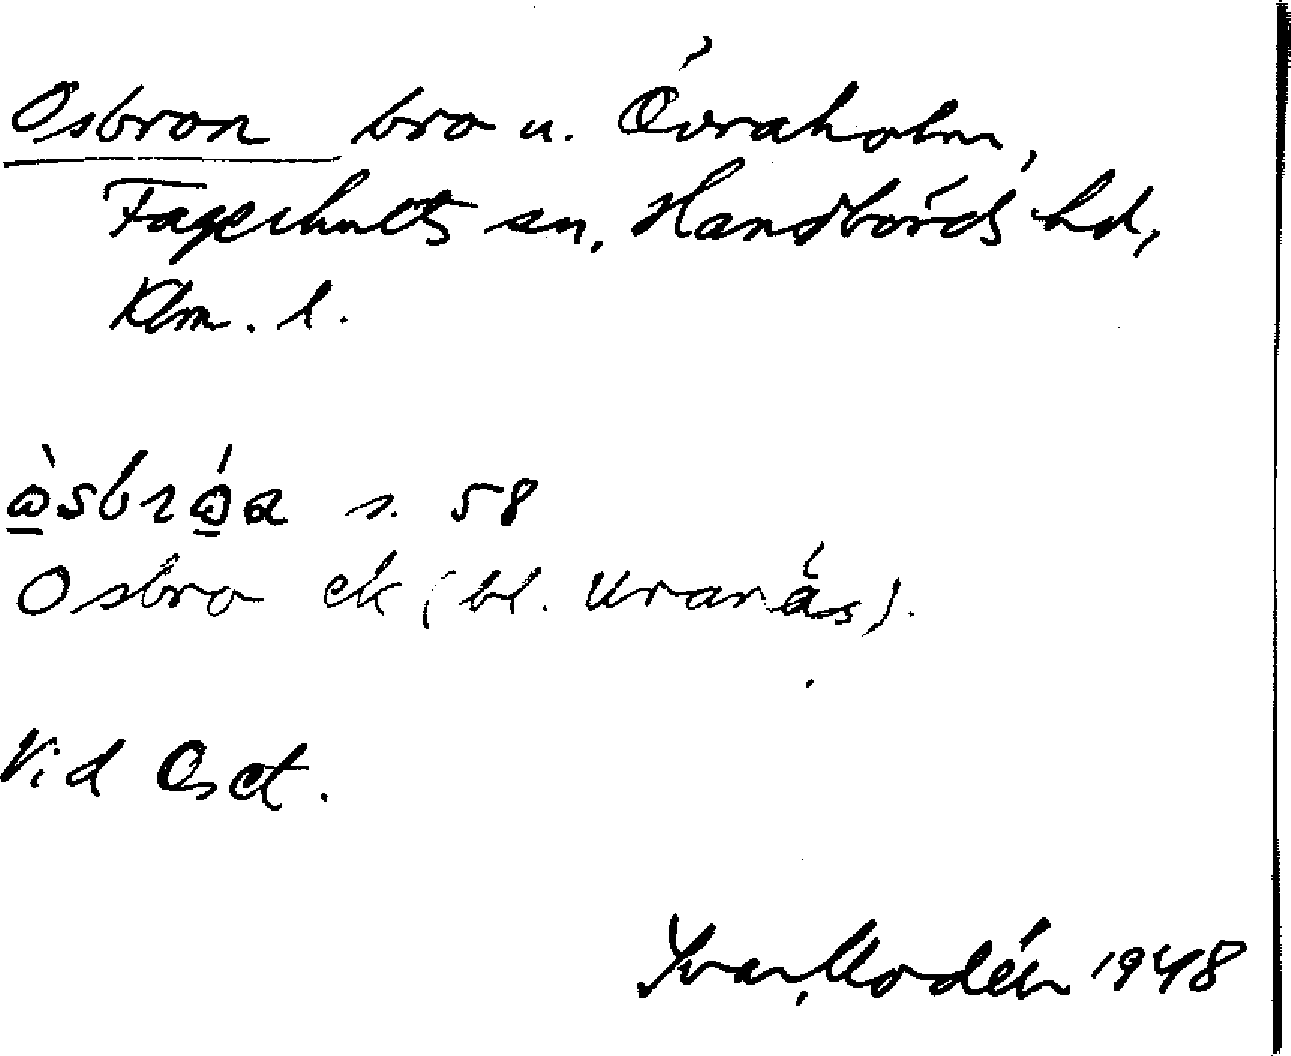 Osbron bro u. Övraholm,
Fagerhults sn, Handbörds hd,
Klm. l.
s. 58
Osbro ek (bl. Uranäs).
Vid Oset.
Ivar Modéer 1948